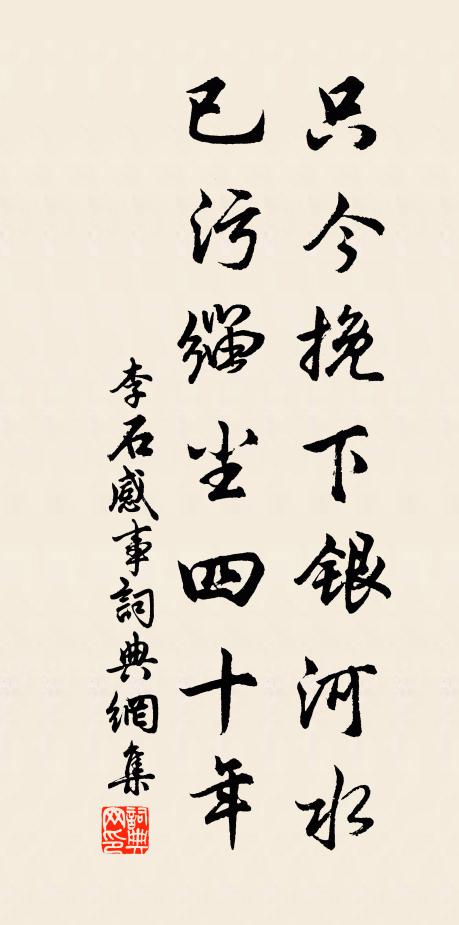 只今挽下銀河水
已污緇尘四十年
李石感事詞典網集
詞典
网印